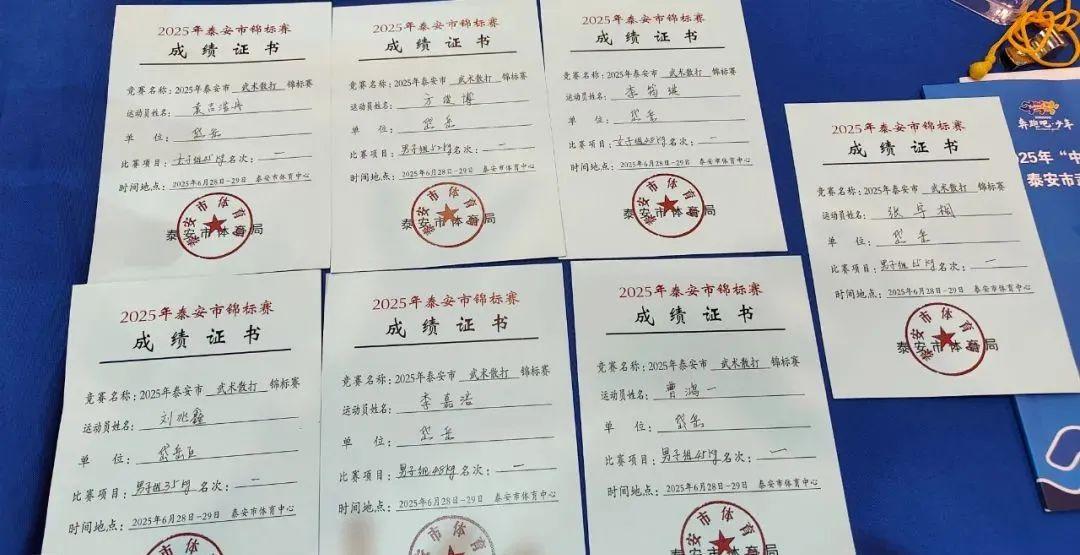 2025年泰安市锦标赛
成绩证书
竞赛名称：2025年泰安市 武术散打 锦标赛
运动员姓名：
单 位：岱岳
比赛项目：女子组45kg 名次：一
时间地点：2025年6月28日-29日 泰安市体育中心
泰安市体育局
2025年泰安市锦标赛
成绩证书
竞赛名称：2025年泰安市 武术散打 锦标赛
运动员姓名：方俊博
单 位：岱岳
比赛项目：男子组52kg 名次：一
时间地点：2025年6月28日-29日 泰安市体育中心
泰安市体育局
2025年泰安市锦标赛
成绩证书
竞赛名称：2025年泰安市 武术散打 锦标赛
运动员姓名：李筠
单 位：岱岳
比赛项目：女子组48kg 名次：一
时间地点：2025年6月28日-29日 泰安市体育中心
泰安市体育局
2025年泰安市锦标赛
成绩证书
竞赛名称：2025年泰安市 武术散打 锦标赛
运动员姓名：张宇桐
单 位：岱岳
比赛项目：男子组 kg 名次：一
时间地点：2025年6月28日-29日 泰安市体育中心
泰安市体育局
奔跑吧·少年
25年“中
泰安市武
2025年泰安市锦标赛
成绩证书
竞赛名称：2025年泰安市 武术散打 锦标赛
运动员姓名：刘兆鑫
单 位：岱岳区
比赛项目：男子组35kg 名次：一
时间地点：2025年6月28日-29日 泰安市体育中心
泰安市体育
2025年泰安市锦标赛
成绩证书
竞赛名称：2025年泰安市 武术散打 锦标赛
运动员姓名：李嘉浩
单 位：岱岳
比赛项目：男子组48kg 名次：一
时间地点：2025年6月28日-29日 泰安市体育中心
泰安市体育
2025年泰安市锦标赛
成绩证书
竞赛名称：2025年泰安市 武术散打 锦标赛
运动员姓名：曹鸿一
单 位：岱岳
比赛项目：男子组45kg 名次：一
时间地点：2025年6月28日-29日 泰安市体育中心
泰安市体育